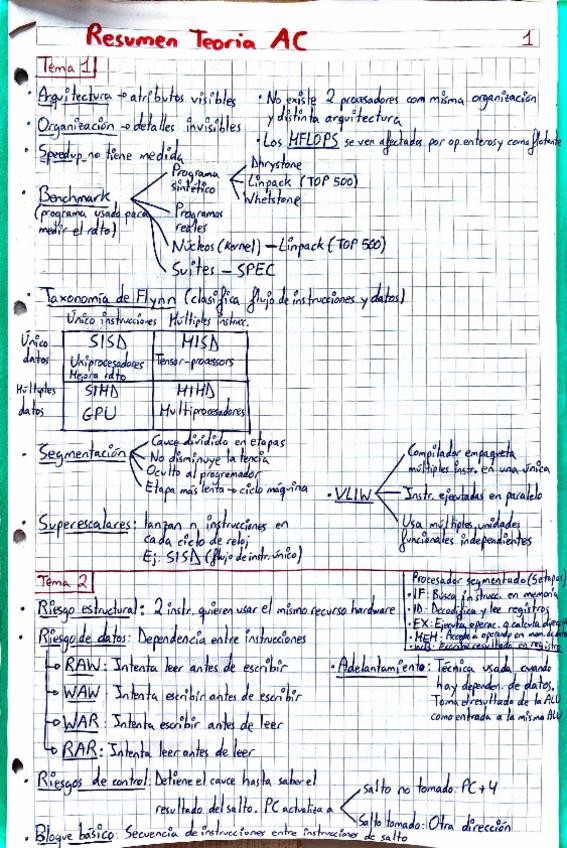 Resumen Teoría AC
1
Tema 1
· Arquitectura → atributos visibles
· Organización → detalles invisibles
· Speedup no tiene medida
· No existe 2 procesadores com misma organización
y distinta arquitectura
· Los MFLOPS se ven afectados por op. enteros y coma flotante
· Benchmark
(programa usado para
medir el rdto)
Programa
sintético
Dhrystone
Linpack (TOP 500)
Whetstone
Programas
reales
Núcleos (Kernel) – Linpack (TOP 500)
Suites – SPEC
· Taxonomía de Flynn (clasifica flujo de instrucciones y datos)
Único instrucciones Múltiples instrucc.
Único
datos
SISD
Uniprocesadores
Mejora rdto
MISD
Tensor-processors
Múltiples
datos
SIMD
GPU
MIMD
Multiprocesadores
· Segmentación
Cauce dividido en etapas
No disminuye latencia
Oculto al programador
Etapa más lenta → ciclo máquina
· VLIW
Compilador empaqueta
múltiples instr. en una única
Instr. ejecutadas en paralelo
Usa múltiples unidades
funcionales independientes
· Superescalares: lanzan n instrucciones en
cada ciclo de reloj
Ej: SISD (flujo de instr. único)
Tema 2
Procesador segmentado (5 etapas)
· IF: Busca instrucc. en memoria
· ID: Decodifica y lee registros
· EX: Ejecuta operac. o calcula direcc
· MEM: Accede a operando en mem. de datos
· WB: Escribe resultado en registro
· Riesgo estructural: 2 instr. quieren usar el mismo recurso hardware
· Riesgo de datos: Dependencia entre instrucciones
→ RAW: Intenta leer antes de escribir
→ WAW: Intenta escribir antes de escribir
→ WAR: Intenta escribir antes de leer
→ RAR: Intenta leer antes de leer
· Adelantamiento: Técnica usada cuando
hay dependen. de datos.
Toma el resultado de la ALU
como entrada a la misma ALU
· Riesgos de control: Detiene el cauce hasta saber el
resultado del salto. PC actualiza a
Salto no tomado: PC+4
Salto tomado: Otra dirección
· Bloque básico: Secuencia de instrucciones entre instrucciones de salto